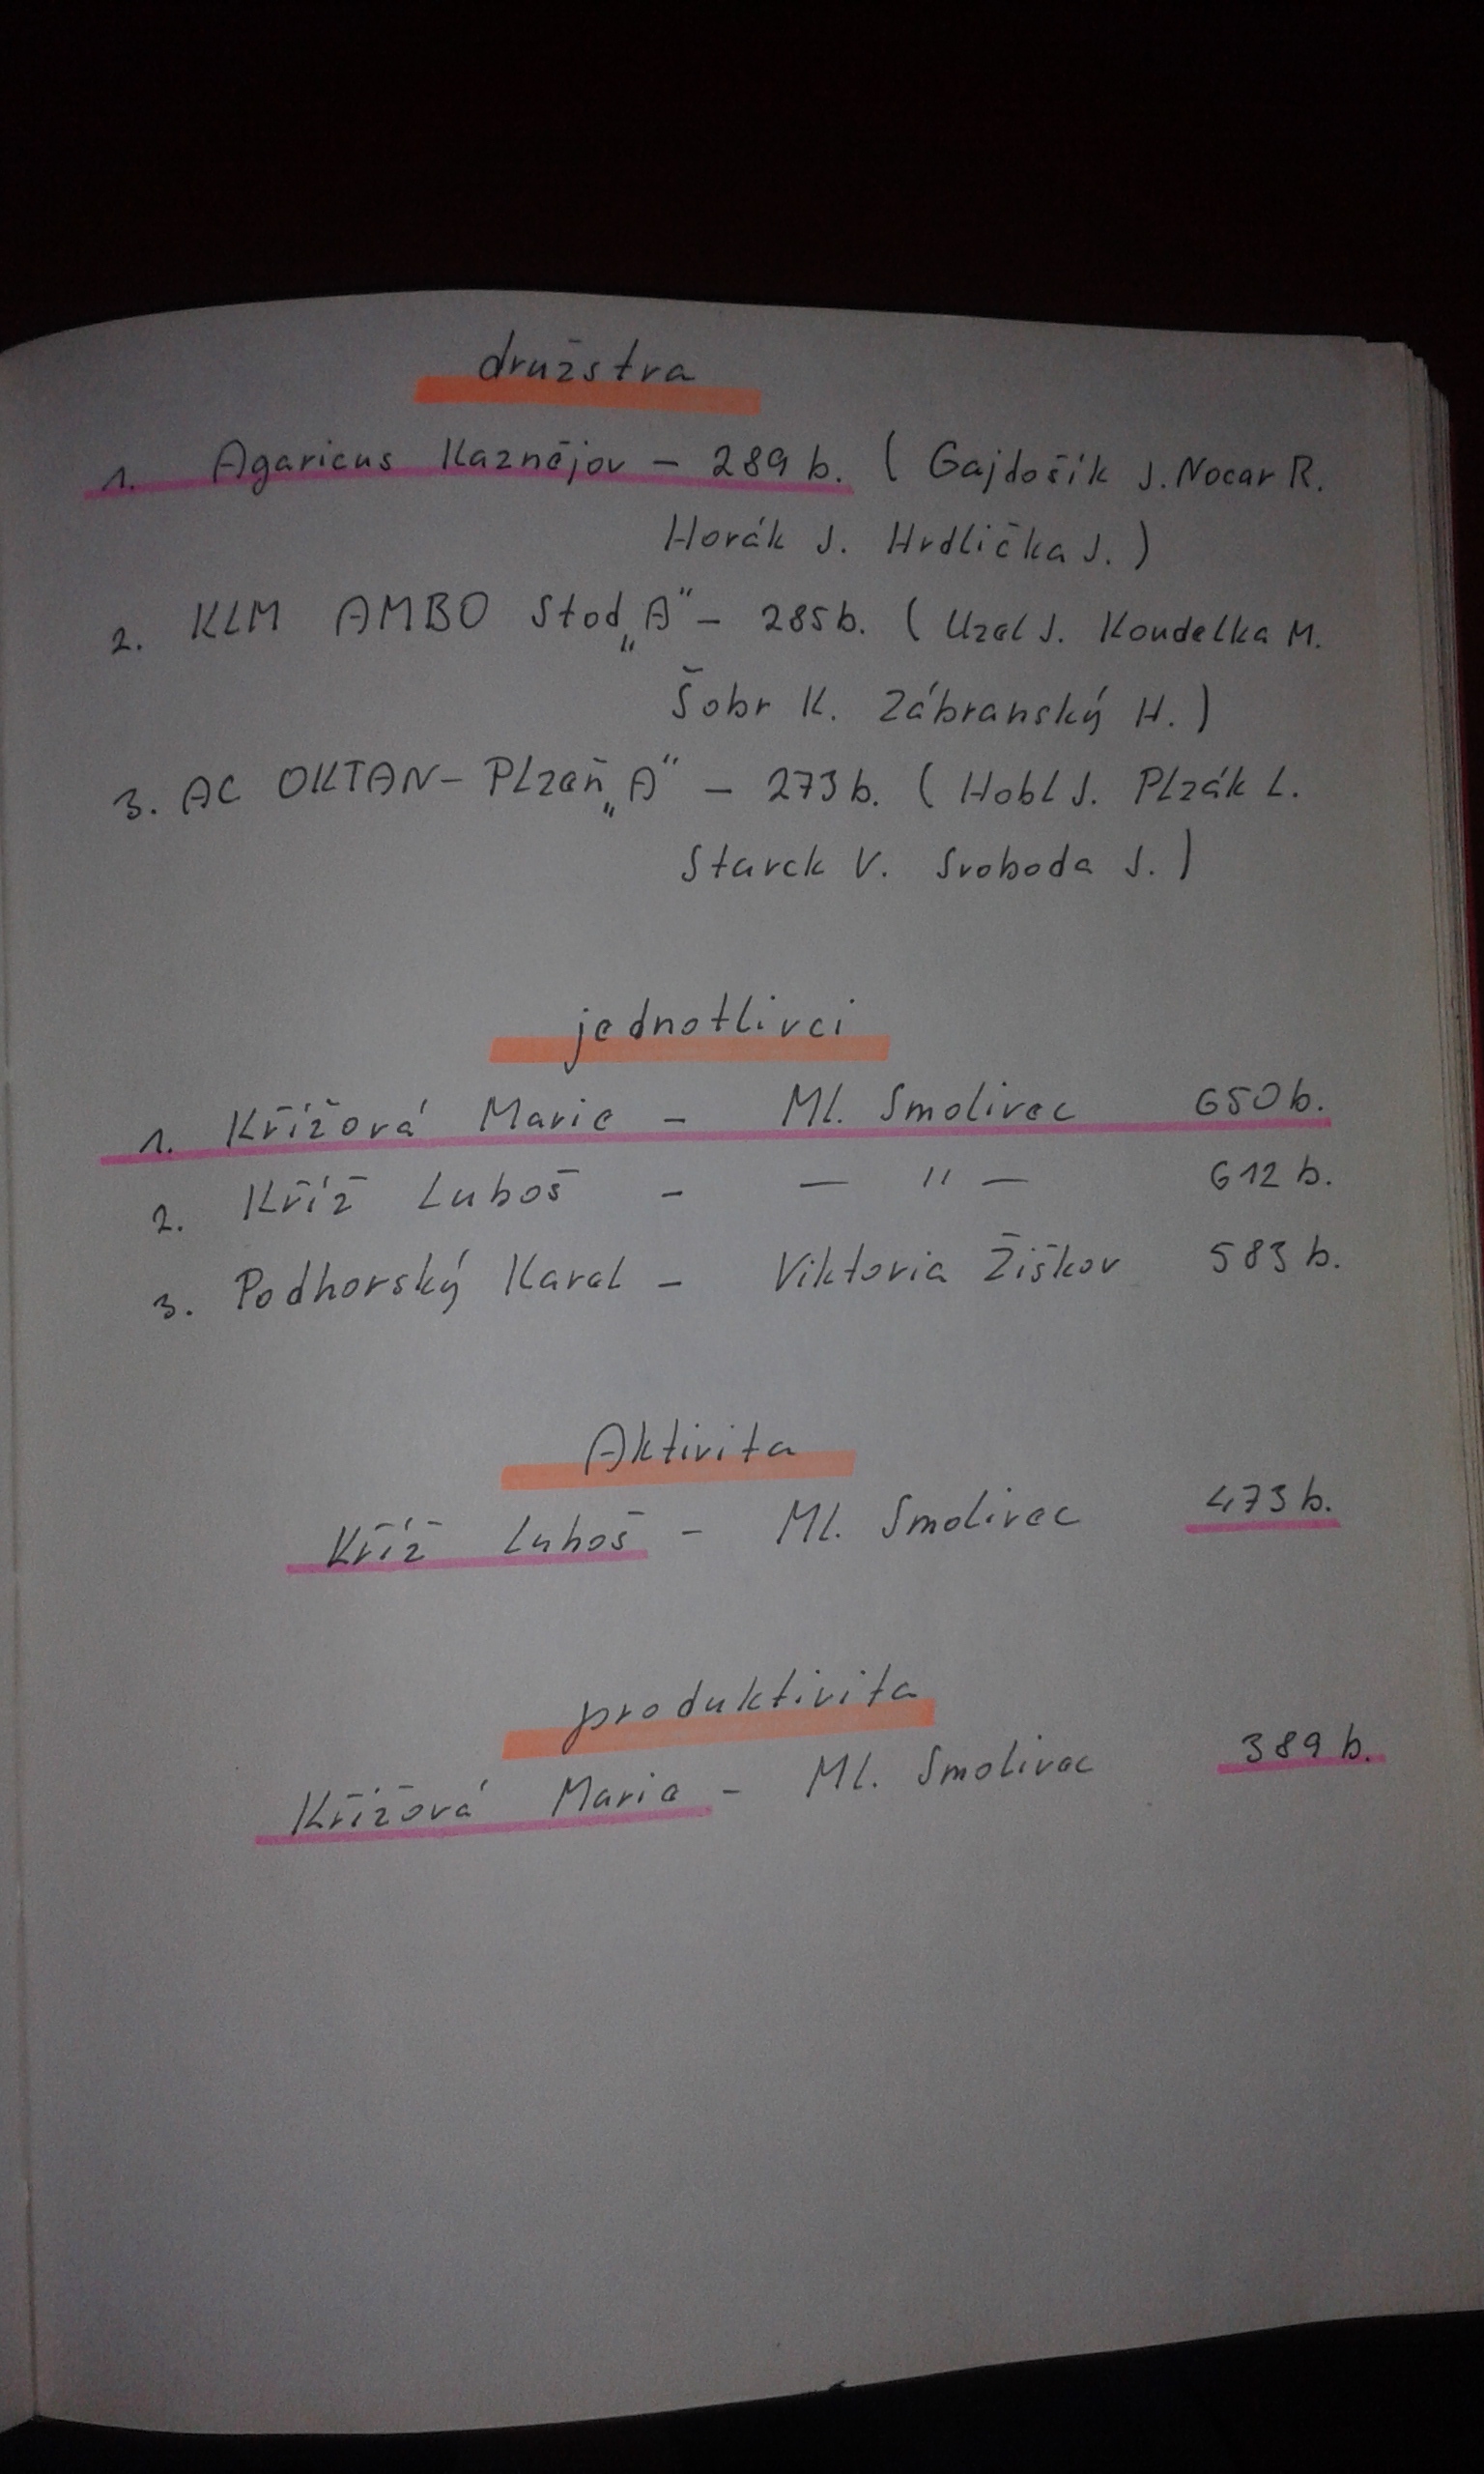 družstva
1. Agaricus Kaznějov - 289 b. ( Gajdošík J. Nocar R.
Horák J. Hrdlička J. )
2. KLM AMBO Stod „A" - 285 b. ( Uzel J. Koudelka M.
Šobr K. Zábranský H. )
3. AC OKTAN - Plzeň „A" - 273 b. ( Hobl J. Plzák L.
Starck V. Svoboda J. )
jednotlivci
1. Křížová Marie - Ml. Smolivec 650 b.
2. Kříž Luboš - — " — 612 b.
3. Podhorský Karel - Viktoria Žižkov 583 b.
Aktivita
Kříž Luboš - Ml. Smolivec 473 b.
produktivita
Křížová Marie - Ml. Smolivec 389 b.